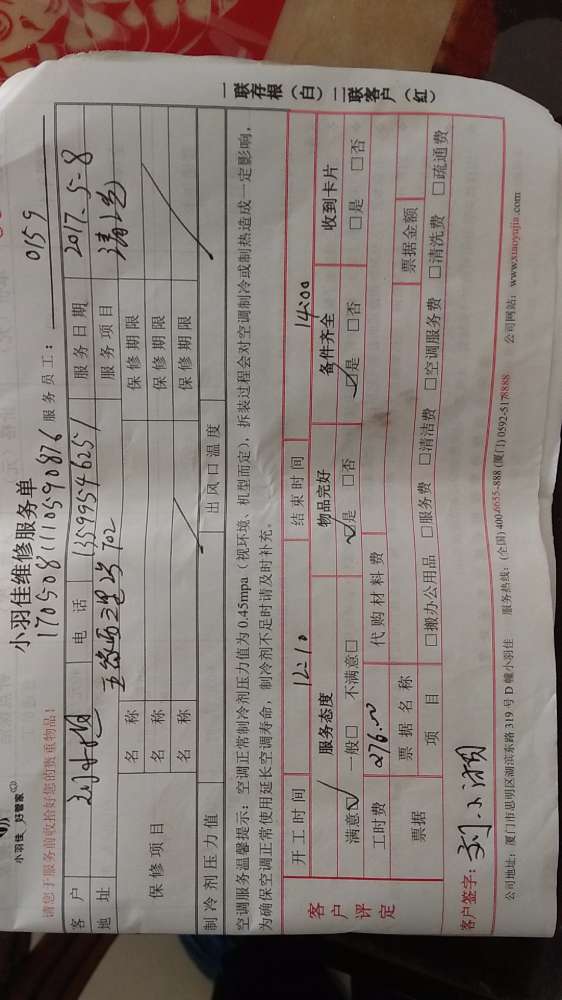 小羽佳 好管家
小羽佳维修服务单
1705081110590876 服务员工： 0159
请您于服务前收拾好您的贵重物品！
客户 电话 13599546257 服务日期 2017.5-8
地址 702 服务项目
保修项目
名称 保修期限
名称 保修期限
名称 保修期限
制冷剂压力值 出风口温度
空调服务温馨提示：空调正常制冷剂压力值为0.45mpa（视环境、机型而定），拆装过程会对空调制冷或制热造成一定影响，
为确保空调正常使用延长空调寿命，制冷剂不足时请及时补充。
客户评定
开工时间 12:10 结束时间 14:00
服务态度 物品完好 备件齐全 收到卡片
满意☑ 一般□ 不满意□ ☑是 □否 ☑是 □否 □是 □否
工时费 276.00 代购材料费
票据 票据名称 票据金额
项目 □搬办公用品 □服务费 □清洁费 □空调服务费 □清洗费 □疏通费
客户签字：
公司地址：厦门市思明区湖滨东路319号D幢小羽佳 服务热线：(全国)400-6655-888 (厦门) 0592-5178888 公司网站：www.xiaoyujia.com
一联存根（白）二联客户（红）